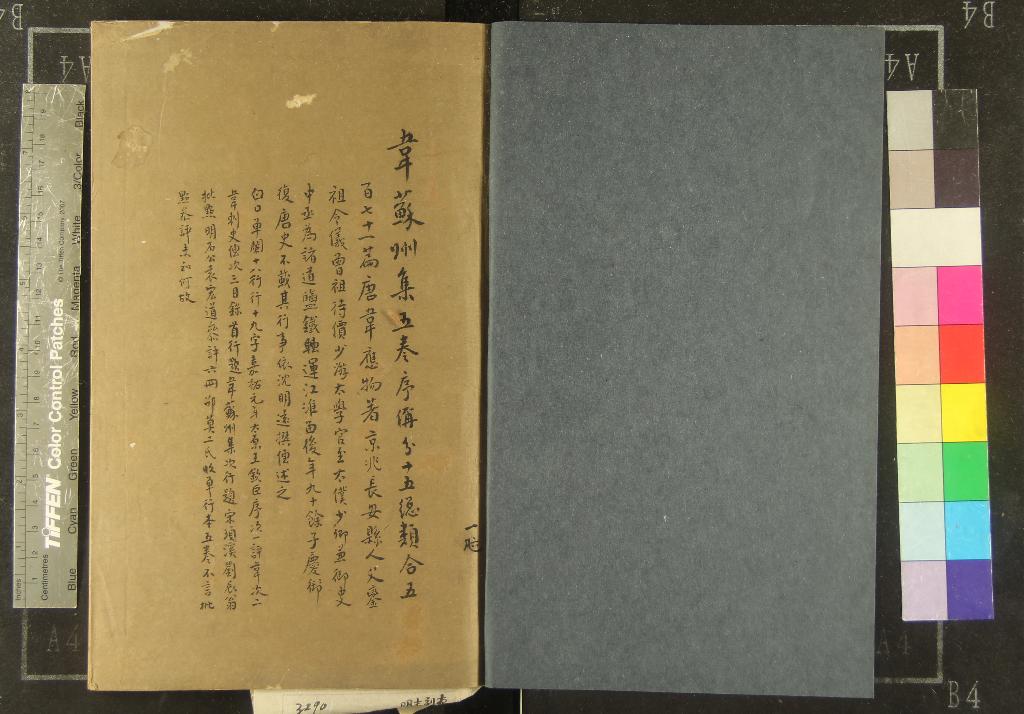 韋蘇州集五卷序偁分十五總類合五
百七十一篇唐韋應物著京兆長安縣人父鑾
祖令儀曾祖待價少游太學官至太僕少卿兼御史
中丞為諸道鹽鐵轉運江淮留後年九十餘子慶復
復唐史不載其行事依沈明遠撰傳述之
白口單闌十八行行十九字嘉祐元年太原王欽臣序次一評韋次二
韋刺史傳次三目錄首行題韋蘇州集次行題宋須溪劉辰翁
批點明石公袁宏道參評六四部莫二氏收單行本五卷不言批
點參評未知何故
一
3290
明袁
Inches
Centimetres
TIFFEN Color Control Patches
© The Tiffen Company, 2007
Blue
Cyan
Green
Yellow
Red
Magenta
White
3/Color
Black
B4
A4
A4
B4
A4
A4
B4